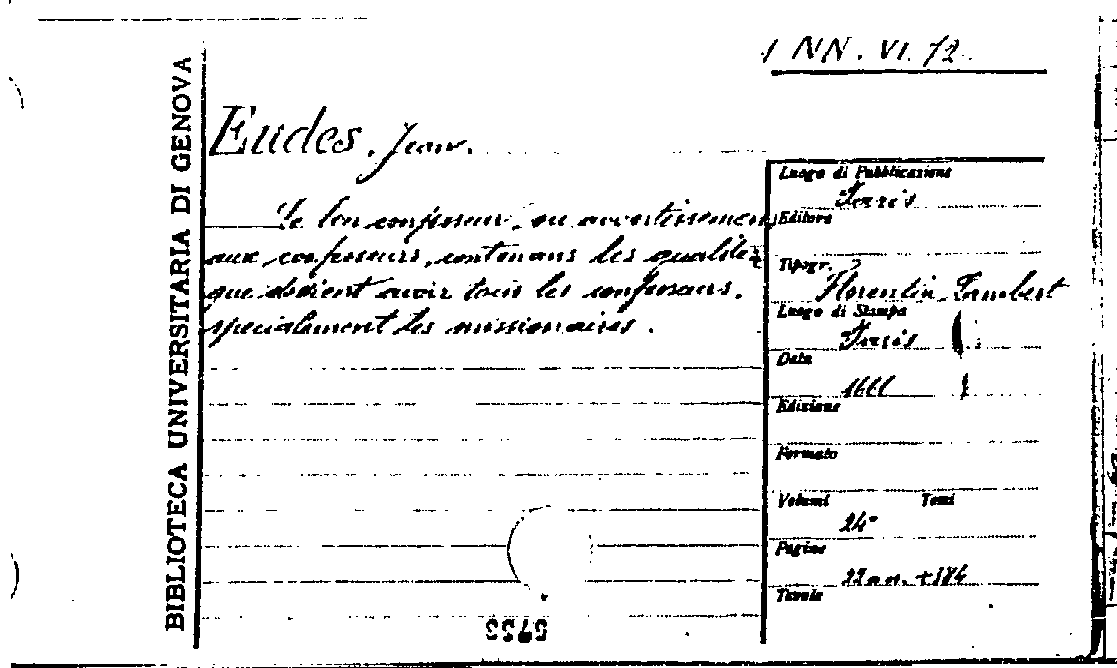 1 NN. VI. 12.
BIBLIOTECA UNIVERSITARIA DI GENOVA
Eudes, Jean.
Le bon confesseur, ou avertissemens
aux confesseurs, contenans les qualitez
que doivent avoir tous les confesseurs,
specialement les missionaires.
Luogo di Pubblicazione
Paris
Editore
Tipogr.
Florentin Lambert
Luogo di Stampa
Paris
Data
1666
Edizione
Formato
Volumi Tomi
24°
Pagine
22 n.n. + 184
Tavole